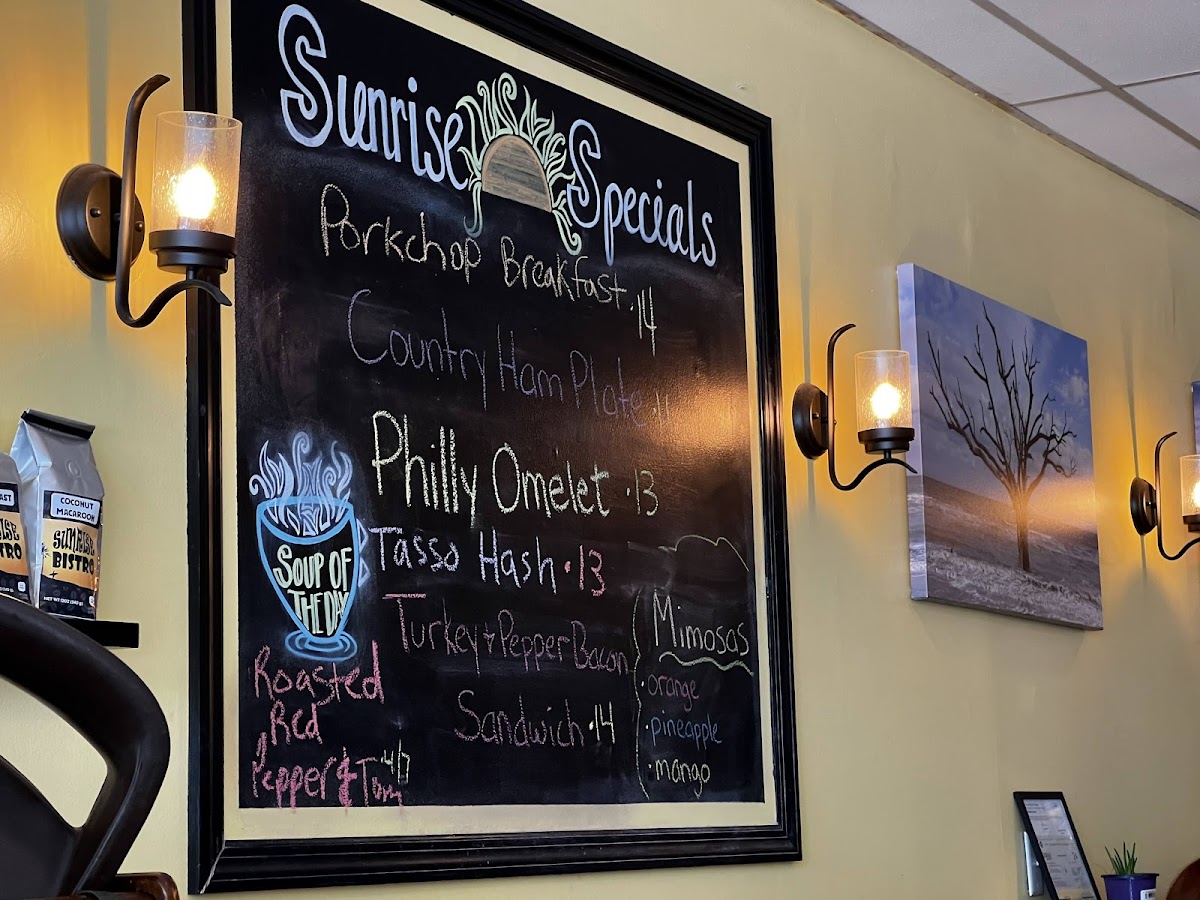 Sunrise Specials
Porkchop Breakfast · 14
Country Ham Plate · 11
Philly Omelet · 13
Tasso Hash · 13
Turkey & Pepper Bacon
Sandwich · 14
SOUP OF
THE DAY
Roasted
Red
Pepper &
4/7
Mimosas
· orange
· pineapple
· mango
COCONUT
MACAROON
SUNRISE
BISTRO
AST
BISTRO